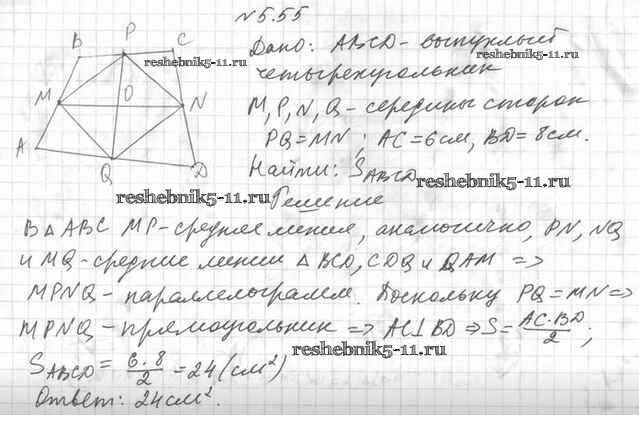 №5.55
B P C
Дано: ABCD - выпуклый
reshebnik5-11.ru
reshebnik5-11.ru
четырехугольник
M O N
M, P, N, Q - середины сторон
PQ = MN ; AC = 6 см, BD = 8 см.
A Q D
Найти: S_ABCD
reshebnik5-11.ru
reshebnik5-11.ru
Решение
В △ ABC MP - средняя линия, аналогично, PN, NQ
и MQ - средние линии △ BCD, CDQ и QAM =>
MPNQ - параллелограмм. Поскольку PQ = MN =>
MPNQ - прямоугольник => AC ⊥ BD => S = AC · BD / 2 ;
reshebnik5-11.ru
S_ABCD = 6 · 8 / 2 = 24 (см²)
Ответ: 24 см².